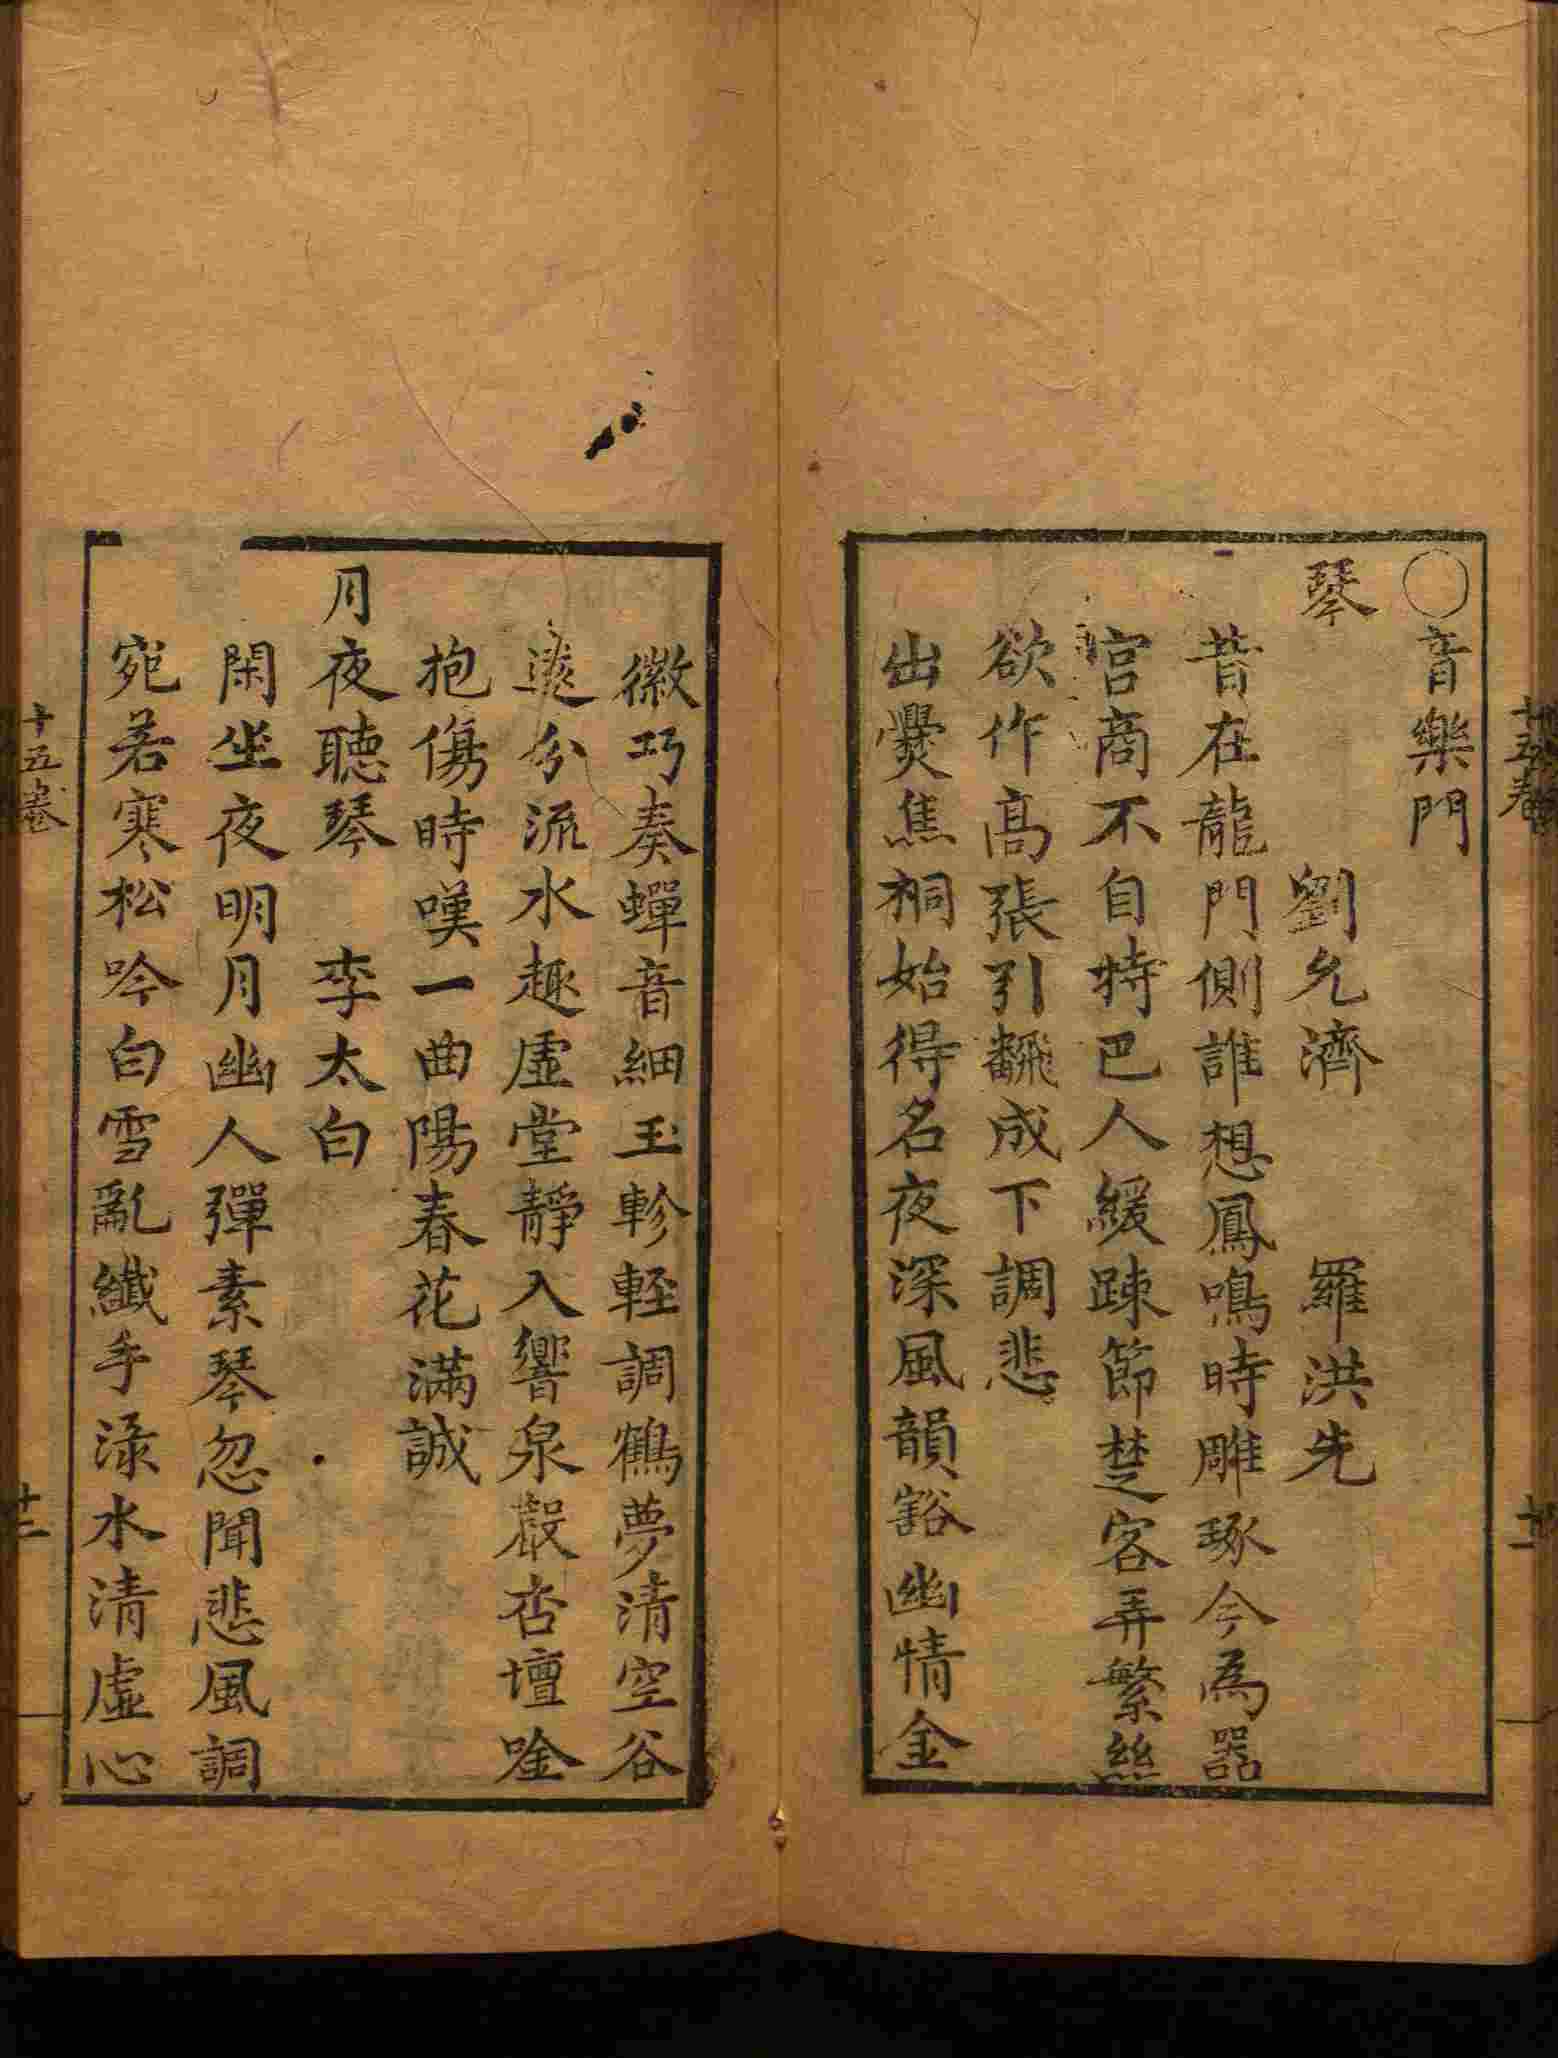 ○音樂門
琴
劉允濟　羅洪先
昔在龍門側誰想鳳鳴時雕琢今為器
宮商不自持巴人緩踈節楚客弄繁絲
欲作高張引飜成下調悲
出爨焦桐始得名夜深風韻豁幽情金
徽巧奏蟬音細玉軫輕調鶴夢清空谷
遶分流水趣虛堂靜入響泉嚴杏壇唫
抱傷時嘆一曲陽春花滿誠
月夜聽琴　李太白
閑坐夜明月幽人彈素琴忽聞悲風調
宛若寒松吟白雪亂纖手淥水清虛心
十五卷
十二
十五卷
十一